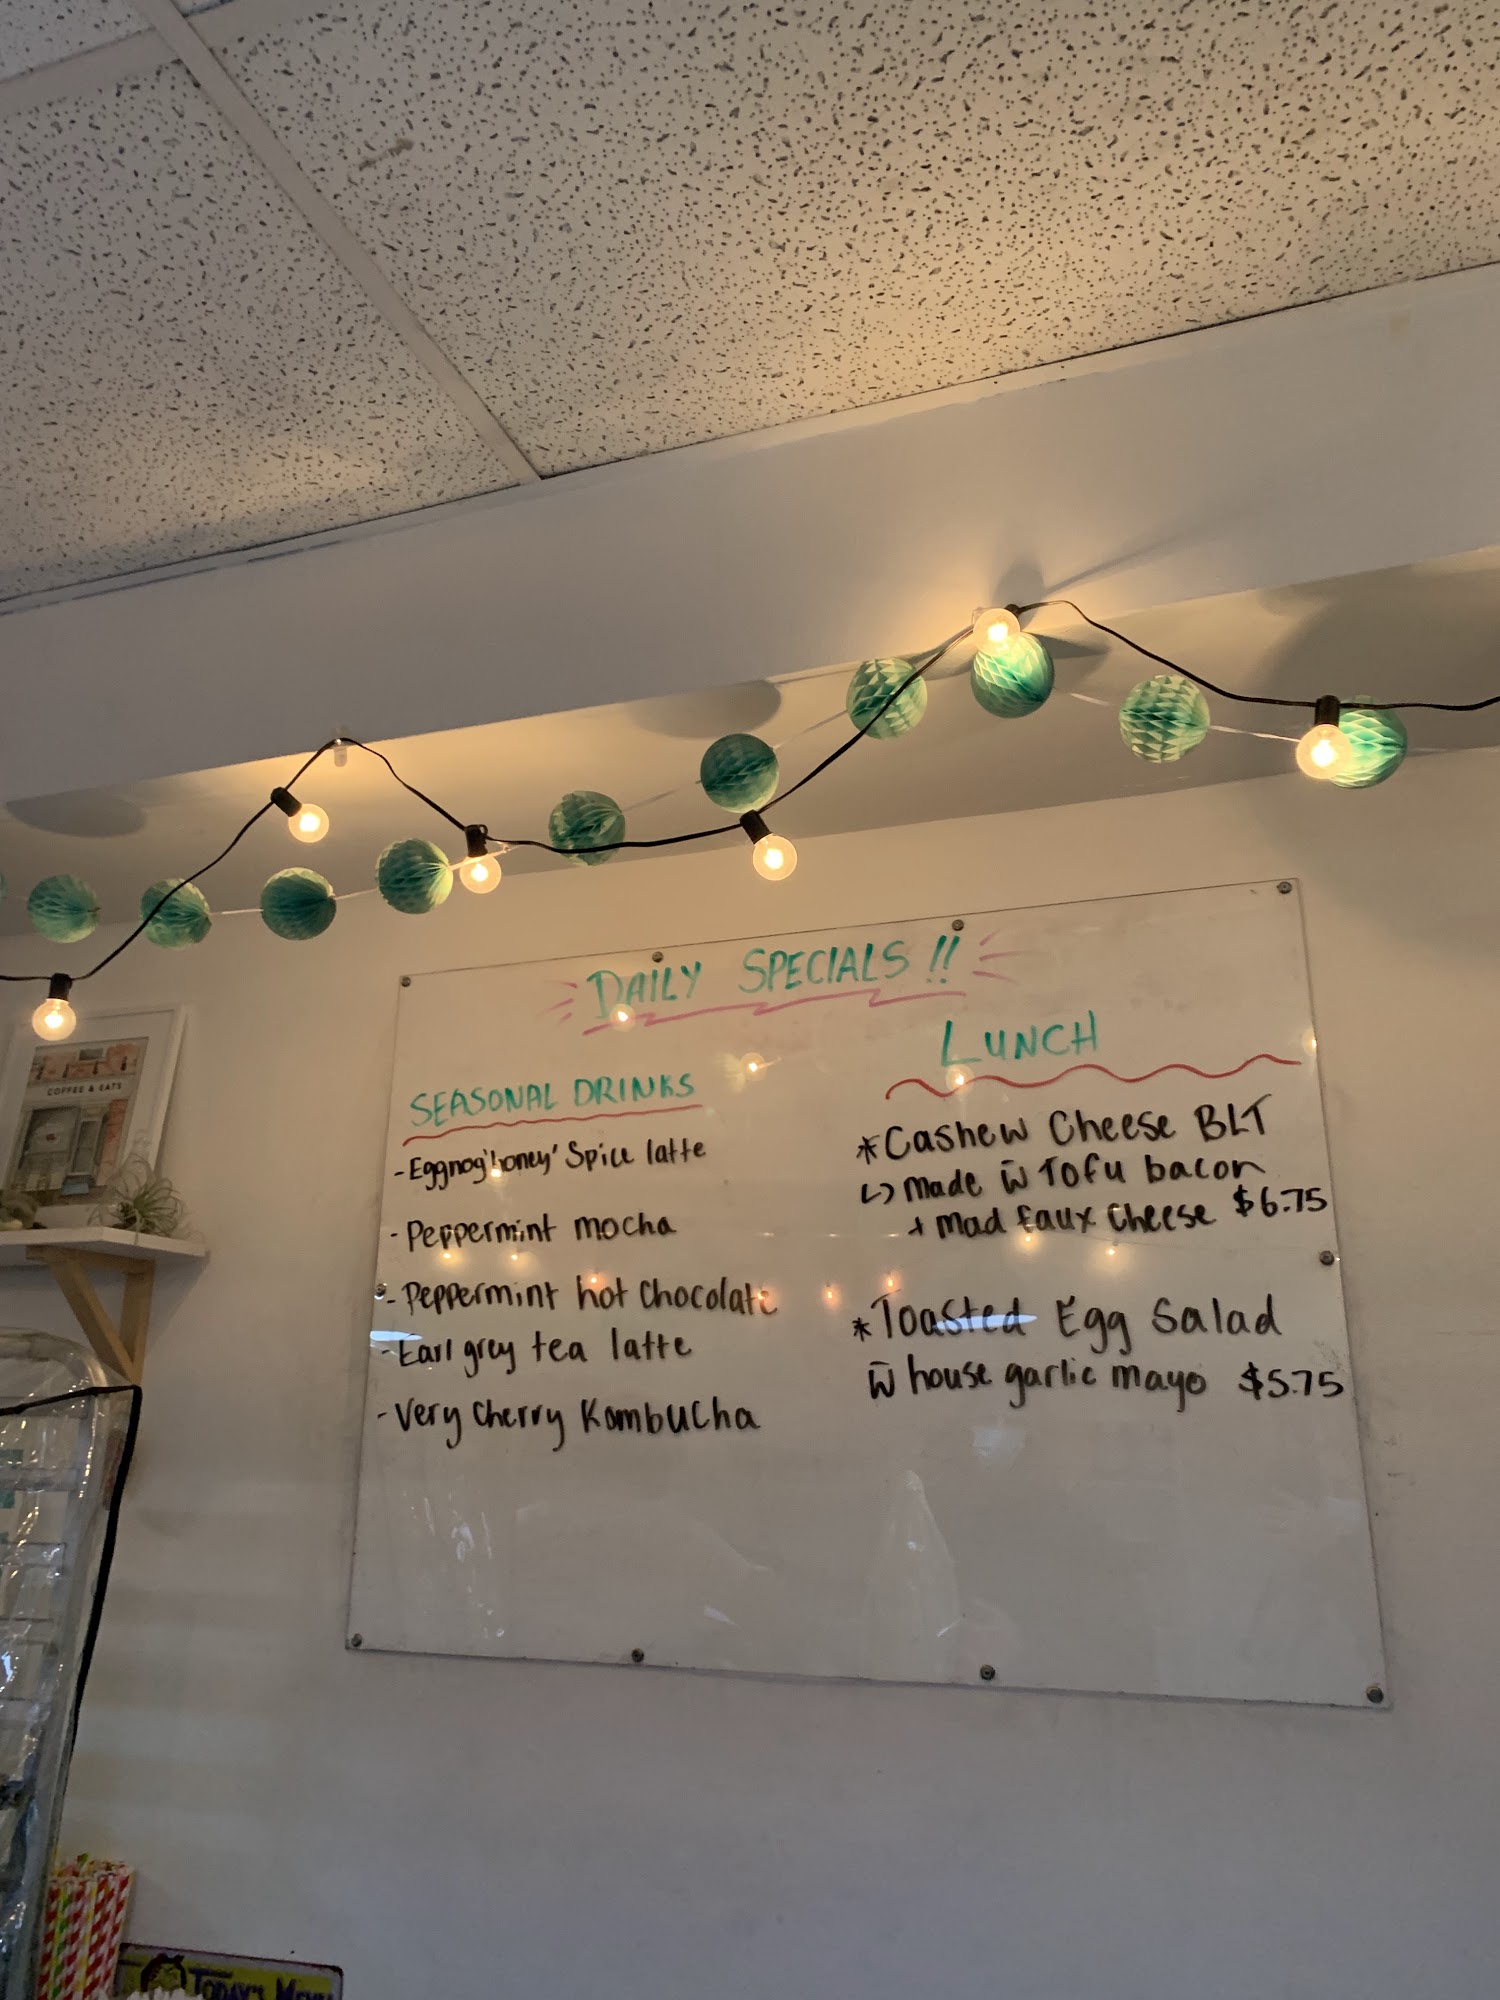 DAILY SPECIALS !!
SEASONAL DRINKS
- Eggnog 'honey' Spice latte
- Peppermint mocha
- Peppermint hot Chocolate
- Earl grey tea latte
- Very Cherry Kombucha
LUNCH
* Cashew Cheese BLT
↳ made w̄ Tofu bacon
+ mad faux Cheese $6.75
* Toasted Egg Salad
w̄ house garlic mayo $5.75
COFFEE & EATS
TODAY'S MENU